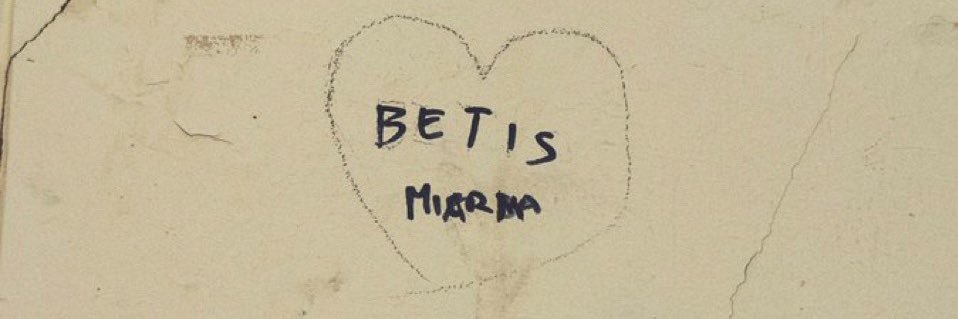 BETIS
MIARMA